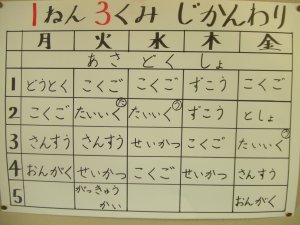 1ねん3くみ じかんわり
月 火 水 木 金
あさどくしょ
1 どうとく こくご こくご ずこう こくご
2 こくご たいいく たいいく ずこう としょ
3 さんすう さんすう せいかつ こくご たいいく
4 おんがく せいかつ こくご せいかつ さんすう
5 がっきゅうかい おんがく